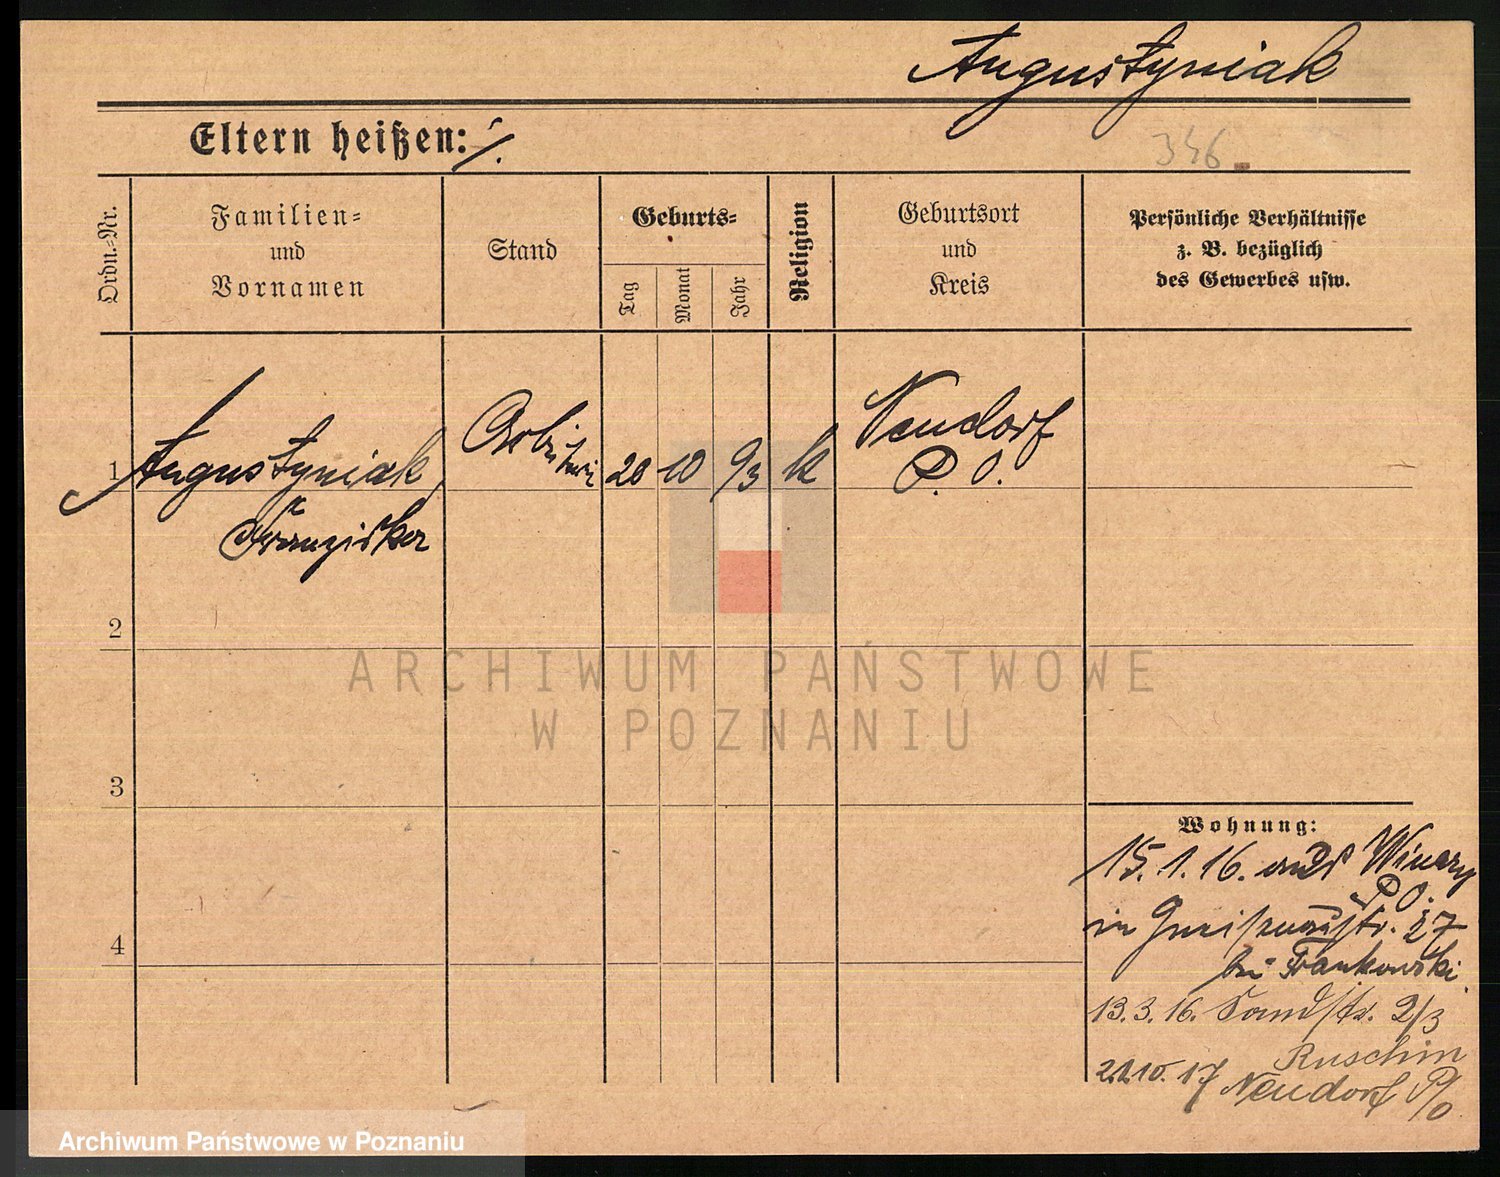 Augustyniak
Eltern heißen: ./.
346
Ordn.-Nr.
Familien-
und
Vornamen
Stand
Geburts-
Tag
Monat
Jahr
Religion
Geburtsort
und
Kreis
Persönliche Verhältnisse
z. B. bezüglich
des Gewerbes usw.
1
Augustyniak,
Franziska
Arbeiterin
20 10 93 k
Neudorf
P. O.
2
3
4
Wohnung:
15.1.16. aus Winary
P O.
in Gneisenaustr. 27
bei Frankowski.
13.3.16. Sandstr. 2/3
Ruschin
21.10.17 Neudorf P/O
ARCHIWUM PAŃSTWOWE
W POZNANIU
Archiwum Państwowe w Poznaniu